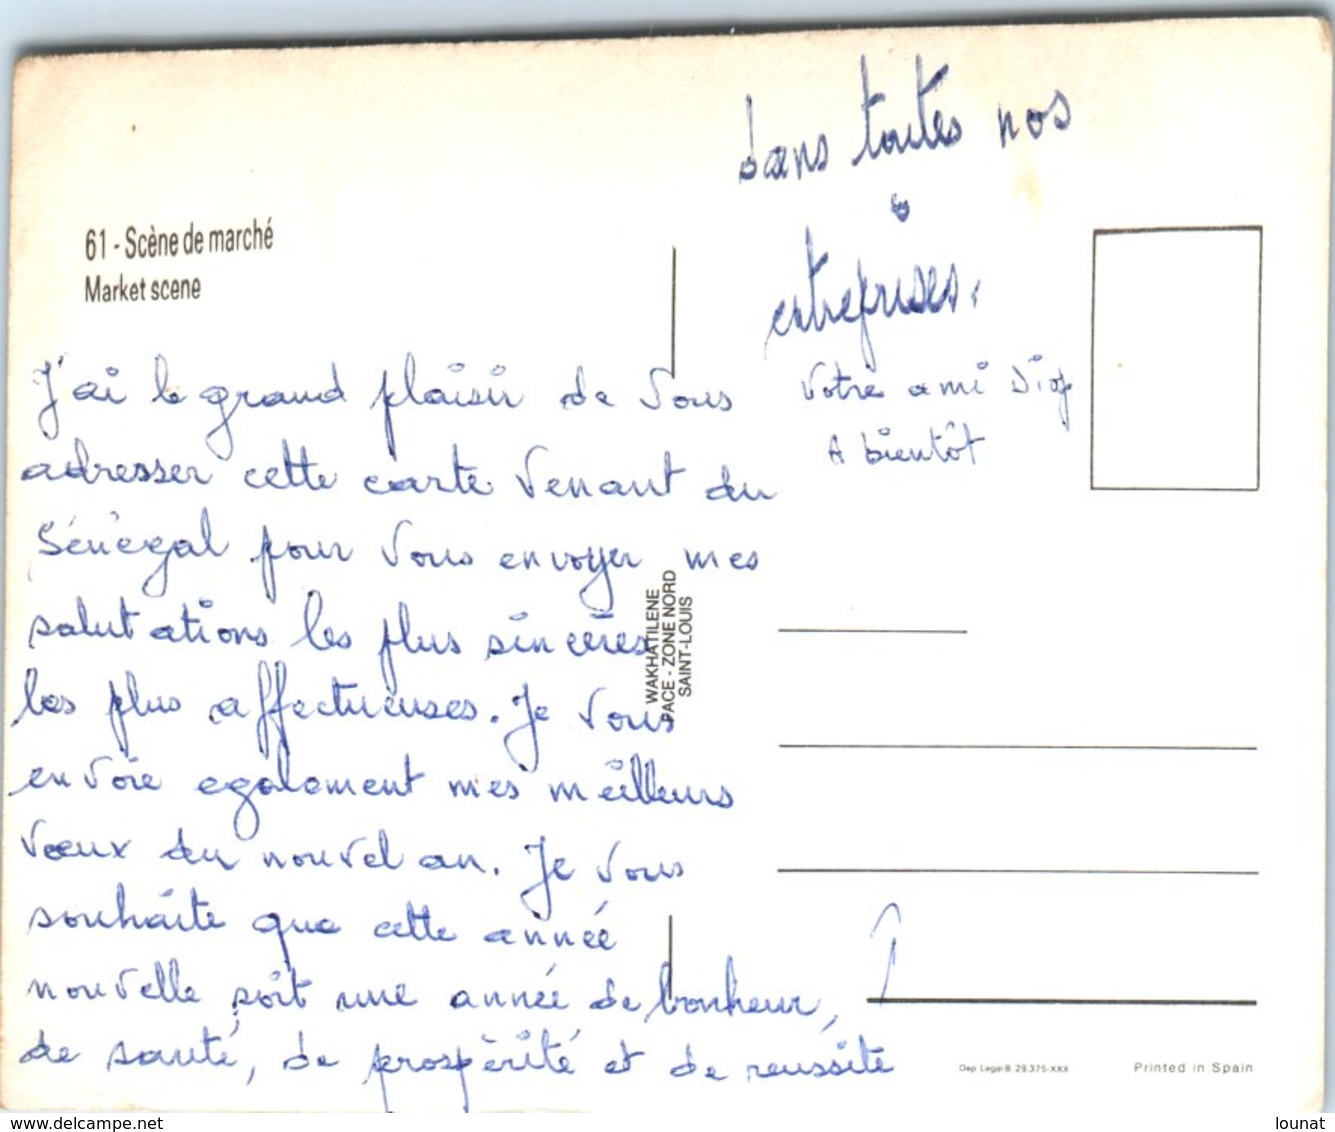 61 - Scène de marché
Market scene
J'ai le grand plaisir de Vous
adresser cette carte Venant du
Sénégal pour Vous envoyer mes
salutations les plus sincères
les plus affectueuses. Je Vous
envoie egalement mes meilleurs
Vœux du nouvel an. Je Vous
souhaite que cette année
nouvelle soit une année de bonheur,
de santé, de prospèrité et de reussite
dans toutes nos
entreprises.
Votre ami Diop
A bientôt
WAKHATILENE
PACE - ZONE NORD
SAINT-LOUIS
Dep. Legal B 29.375-XXX
Printed in Spain
www.delcampe.net
lounat